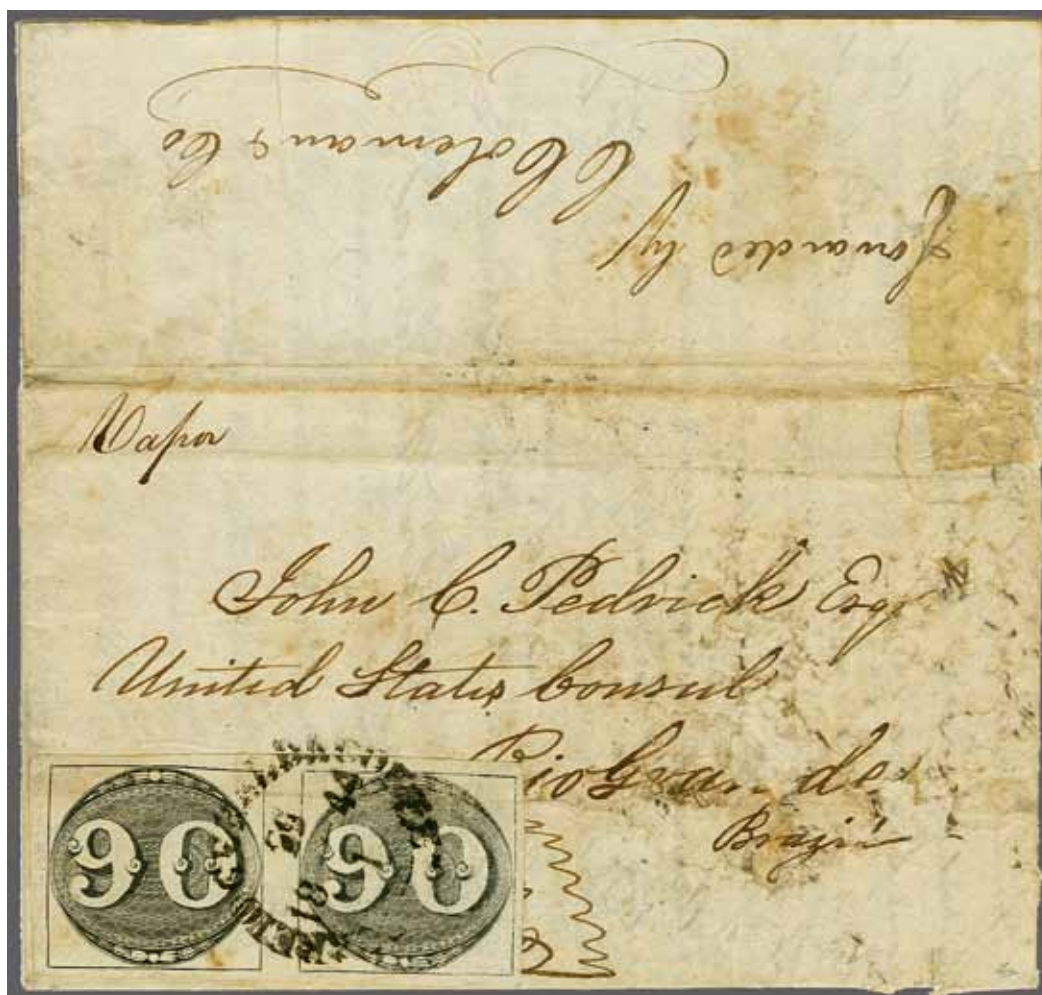 Forwarded by
C Coleman & Co
Vapor
John C. Pedrick Esqr
United States Consul
Rio Grande
Brazil
90 90
1844